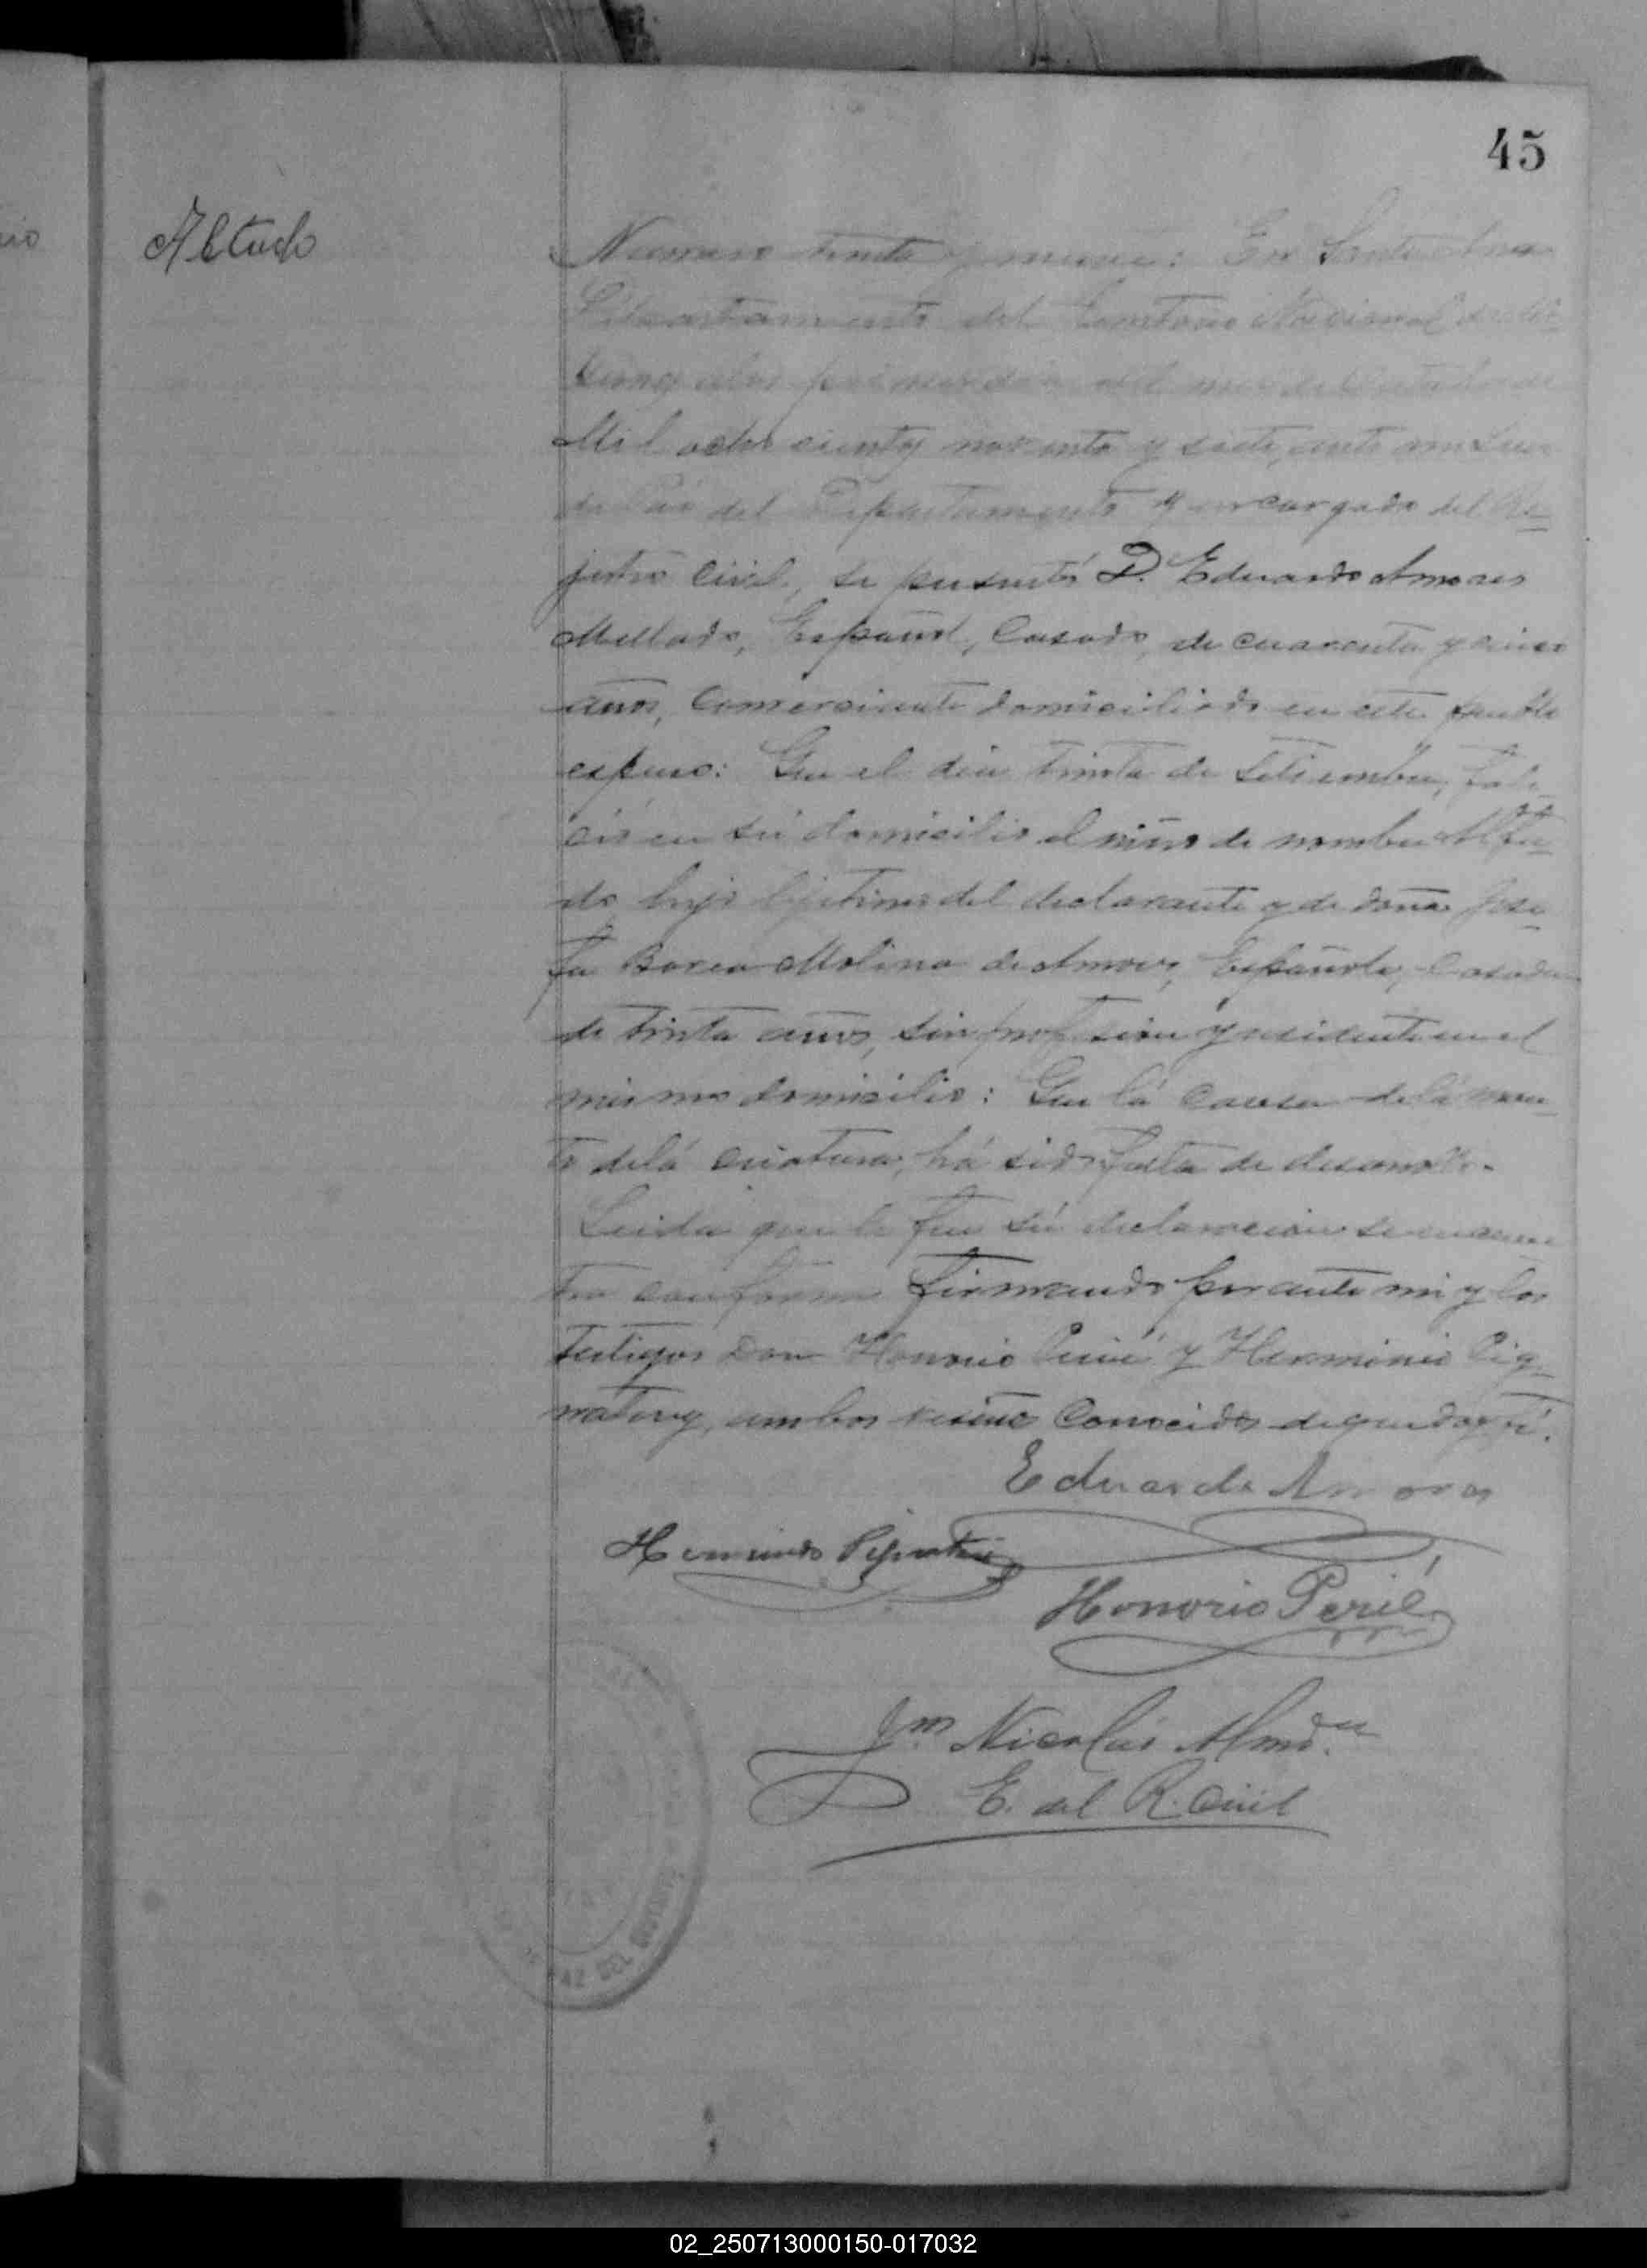 45
Numero treinta y nueve: En Santa Ana
Departamento del Territorio Nacional de
primer dia del mes de Octubre de
Mil ochocientos noventa y siete, ante mi Juez
de Paz del Departamento y encargado del Re-
jistro Civil, se presentó D. Eduardo Amores
Mellado, Español, Casado, de cuarenta y cinco
años, Comerciante domiciliado en este pueblo
espuso: Que el dia treinta de Setiembre, fale-
ció en su domicilio el niño de nombre Alfre-
do hijo lejitimo del declarante y de doña Jose-
fa Borea Molina de Amores, Española, Casada
de treinta años, sin profesion y residente en el
mismo domicilio: Que lá causa de lá muer-
te de lá criatura, há sido falta de desarrollo.
Leida que le fue sú declaracion se encuen
tra conforme firmando por ante mi y los
testigos Don Honorio Perié y Herminio Pig-
natary, ambos vecino Conocidos de que doy fé.
Eduardo Amores
Herminio Pignatary
Honorio Perié
Jn. Nicolás
E. del R. Civil
PAZ DEL
02_250713000150-017032